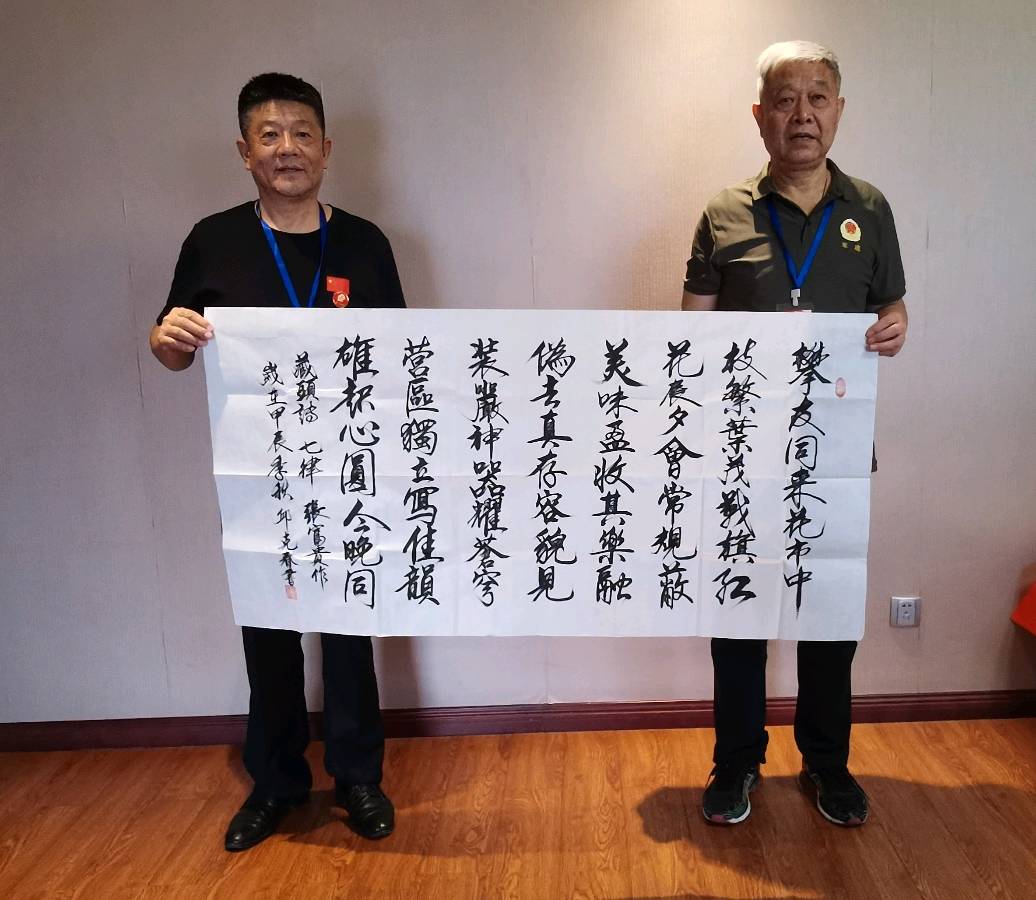 攀友同来花市中
枝繁葉茂戰旗红
花晨夕會常規蔽
美味盈收其樂融
偽去真存容貌見
装嚴神器耀蒼穹
营區獨立寫佳韻
雄起心圓今晚同
藏頭诗 七律 張富贵作
歲在甲辰季秋邱克春書